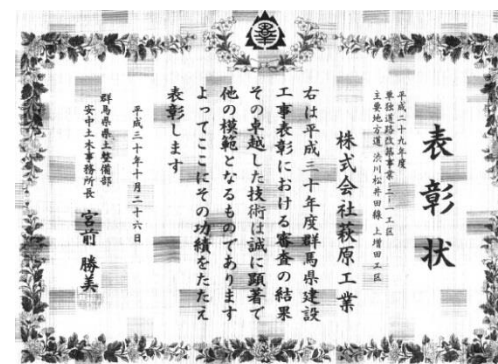 表彰状
平成二十九年度
単独道路改築事業 二一一工区
主要地方道 渋川松井田線 上増田工区
株式会社萩原工業
右は平成三十年度群馬県建設
工事表彰における審査の結果
その卓越した技術は誠に顕著で
他の模範となるものであります
よってここにその功績をたたえ
表彰します
平成三十年十月二十六日
群馬県県土整備部
安中土木事務所長
宮前 勝美